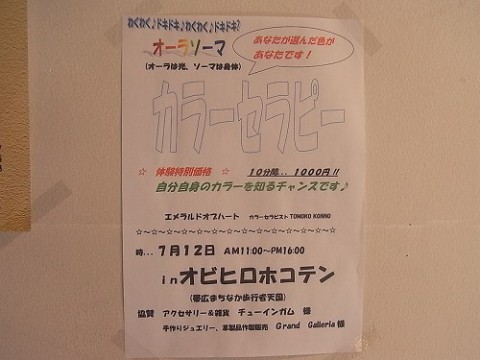 わくわく♪ドキドキ♪わくわく♪ドキドキ?
オーラソーマ
(オーラは光、ソーマは身体)
あなたが選んだ色が
あなたです!
カラーセラピー
☆ 体験特別価格 ☆ 10分間.. 1000円!!
自分自身のカラーを知るチャンスです♪
エメラルドオブハート カラーセラピスト TOMOKO KONNO
☆~☆~☆~☆~☆~☆~☆~☆~☆~☆~☆~☆~☆~☆~☆
時... 7月12日 AM11:00~PM16:00
inオビヒロホコテン
(帯広まちなか歩行者天国)
協賛 アクセサリー&雑貨 チューインガム 様
手作りジュエリー、革製品作製販売 Grand Galleria 様